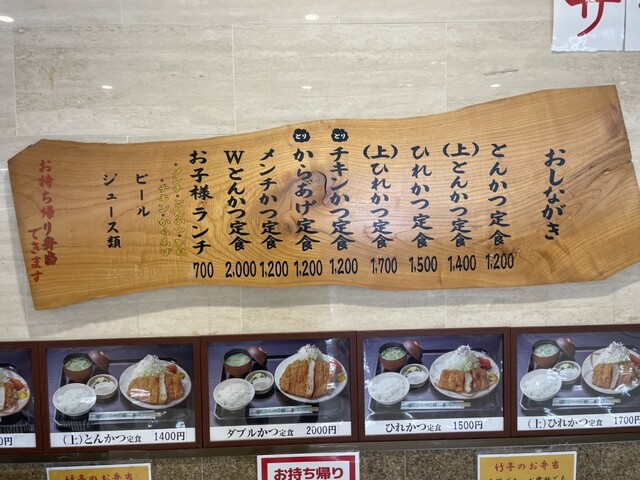 サ
おしながき
とんかつ定食 1,200
(上)とんかつ定食 1,400
ひれかつ定食 1,500
(上)ひれかつ定食 1,700
とり チキンかつ定食 1,200
とり からあげ定食 1,200
メンチかつ定食 1,200
Wとんかつ定食 2,000
お子様ランチ 700
ビール
ジュース類
お持ち帰り弁当
できます
0円
(上)とんかつ定食 1400円
ダブルかつ定食 2000円
ひれかつ定食 1500円
(上)ひれかつ定食 1700円
竹亭のお弁当
お持ち帰り
竹亭のお弁当